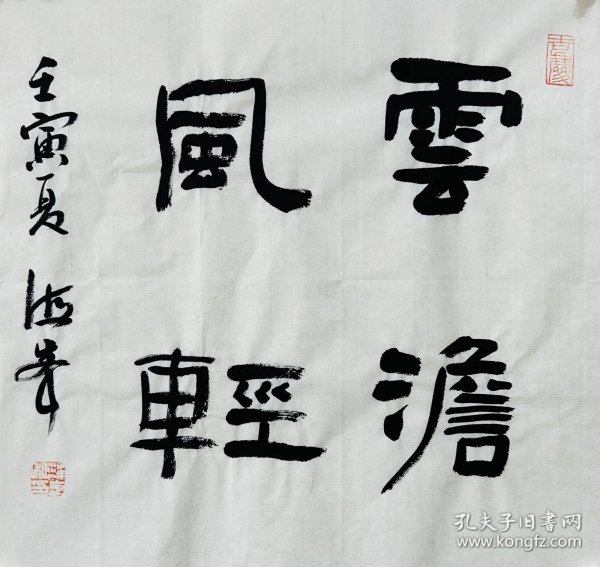 雲澹
風輕
壬寅夏 海峰
孔夫子旧书网
www.kongfz.com